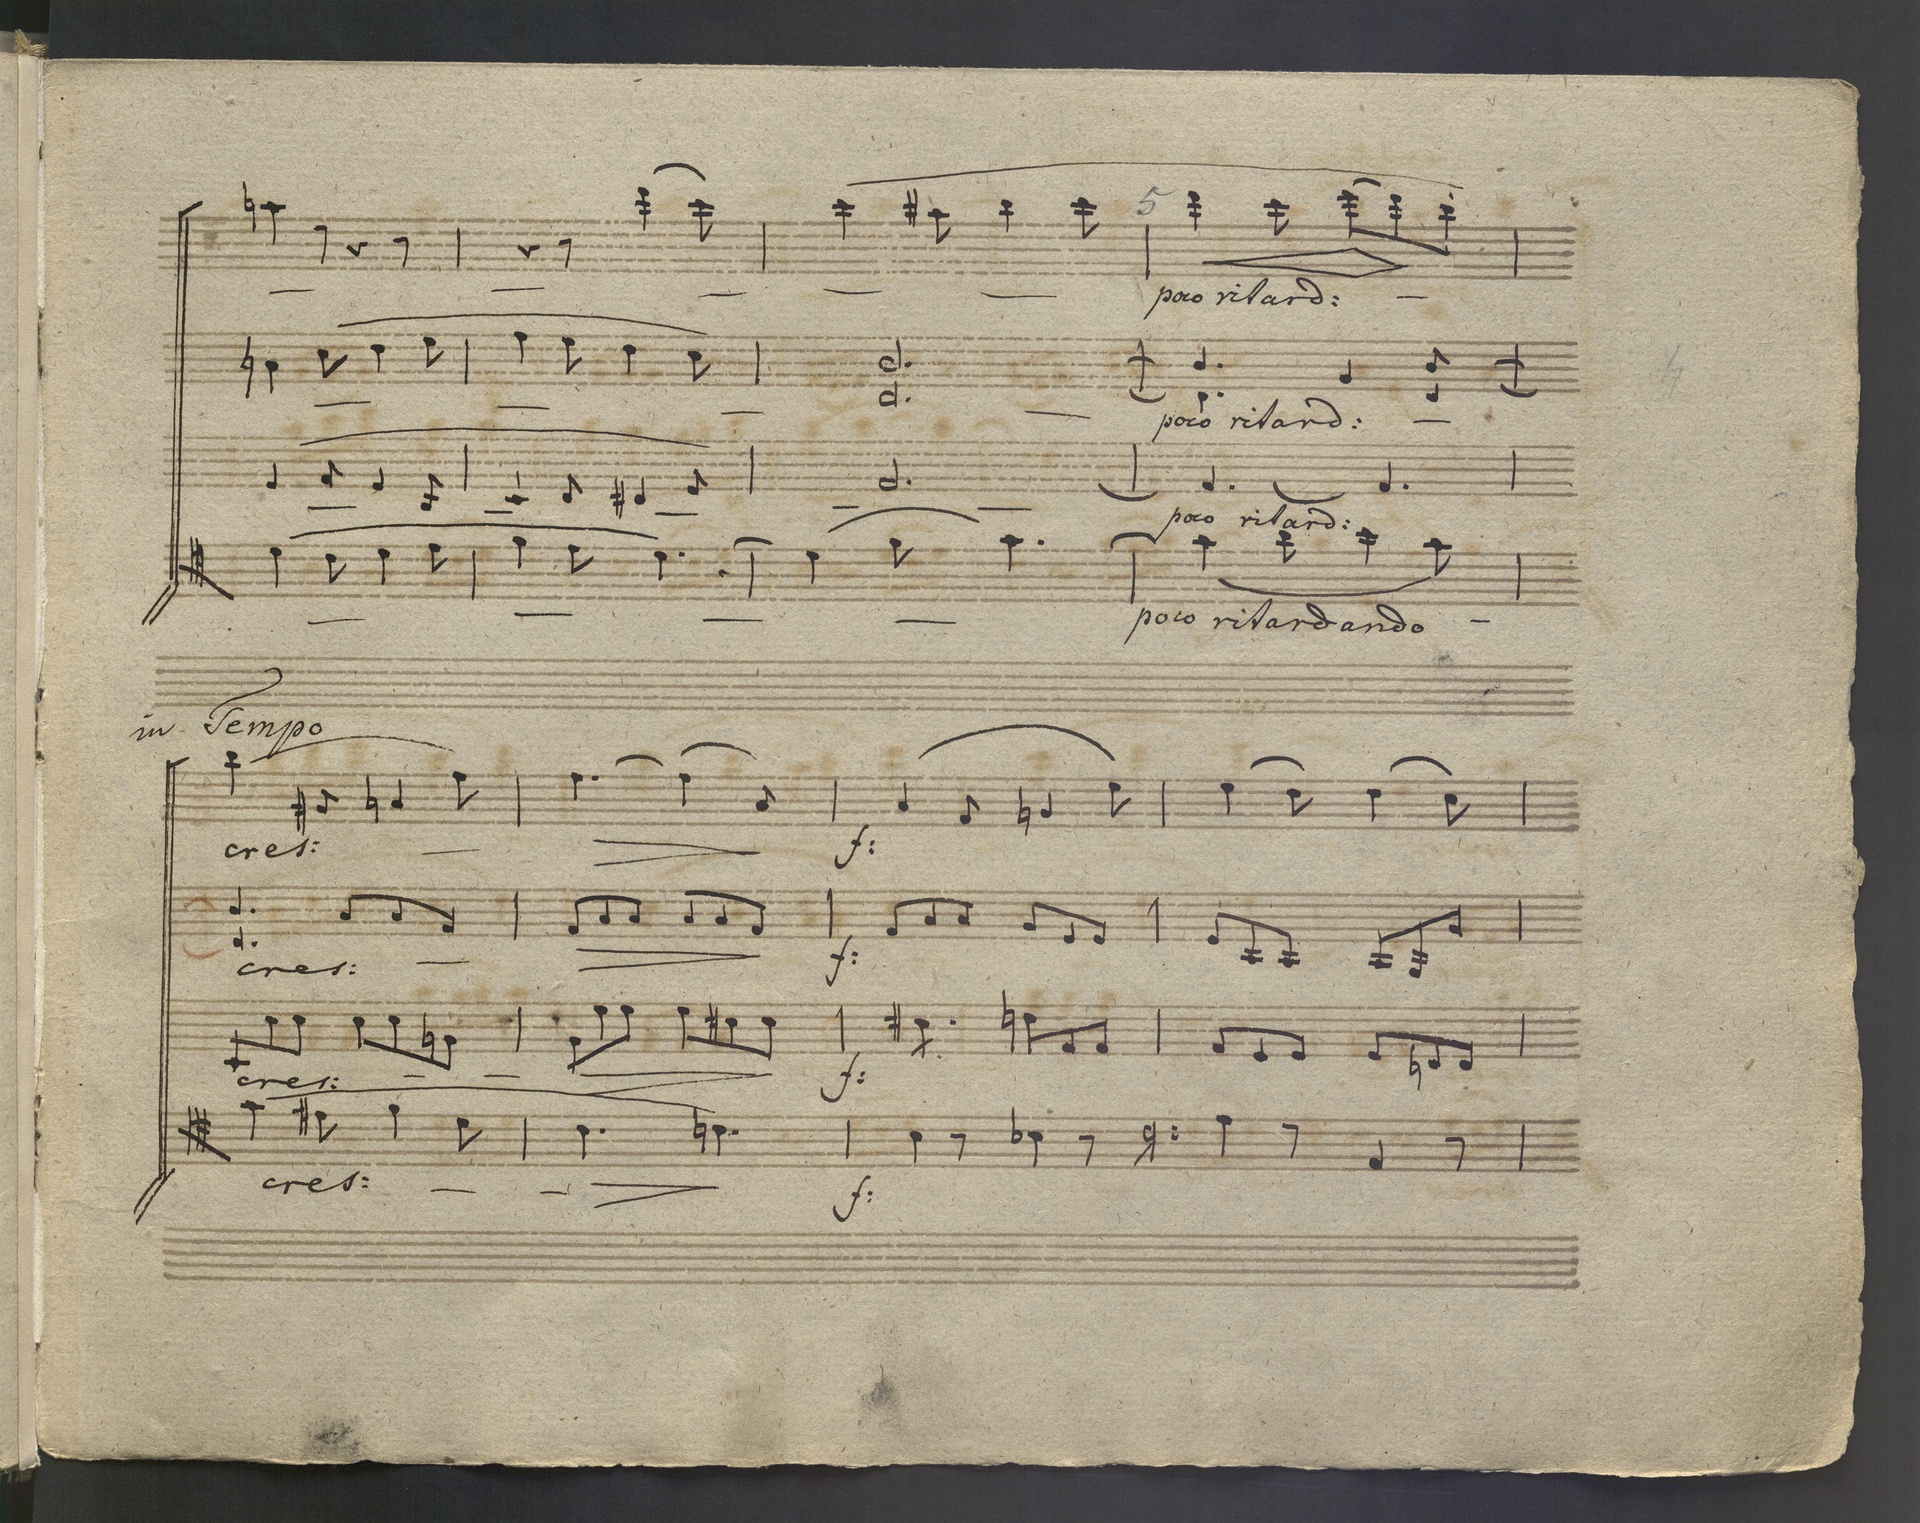 5
poco ritard: –
poco ritard: –
4
poco ritard:
poco ritardando –
in Tempo
cres: f:
cres: f:
cres: f:
cres: f: